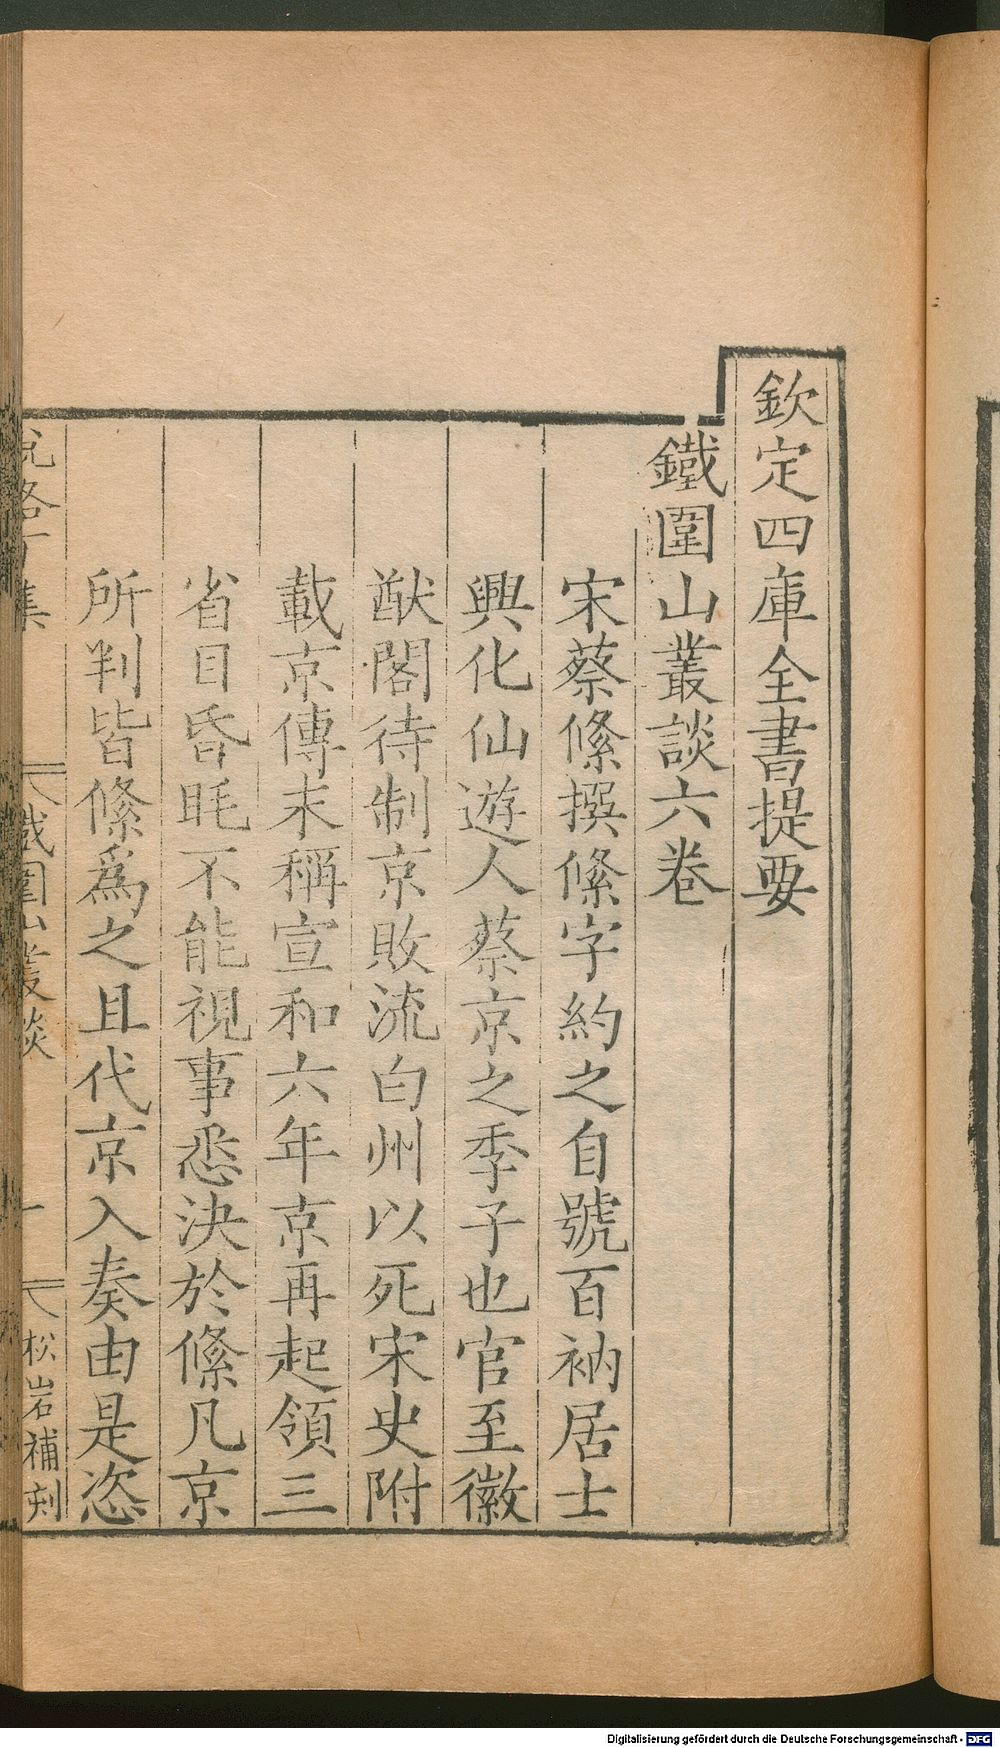 欽定四庫全書提要
鐵圍山叢談六卷
宋蔡絛撰絛字約之自號百衲居士
興化仙遊人蔡京之季子也官至徽
猷閣待制京敗流白州以死宋史附
載京傳末稱宣和六年京再起領三
省目昏眊不能視事悉決於絛凡京
所判皆絛爲之且代京入奏由是恣
集
鐵圍山叢談
一
松岩補刻
Digitalisierung gefördert durch die Deutsche Forschungsgemeinschaft - DFG